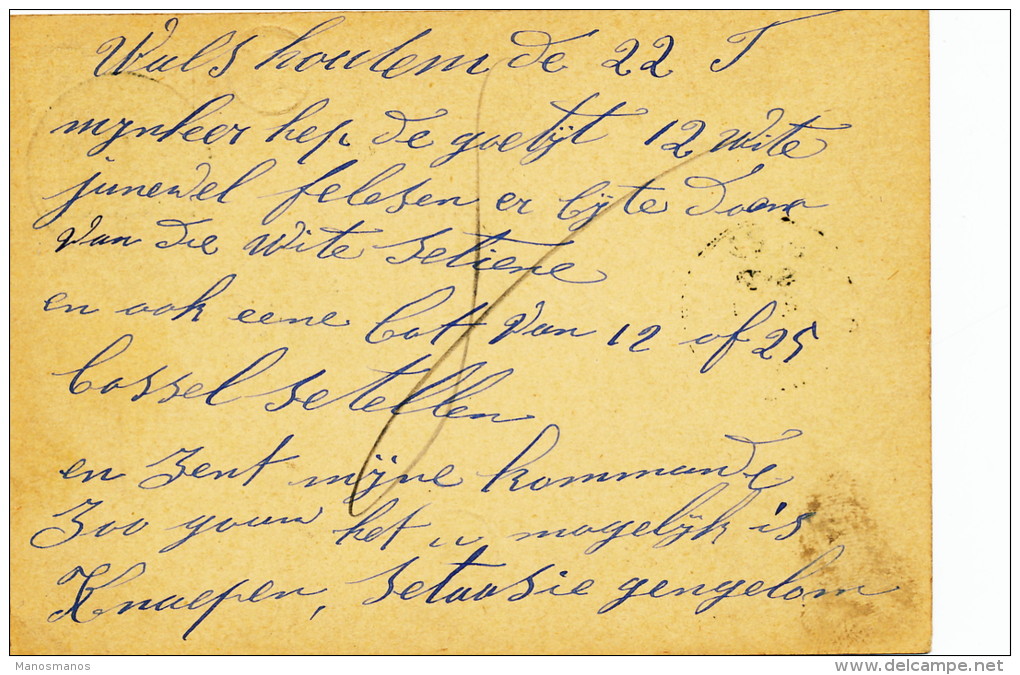 Wals houtem de 22 T
mynheer hep de goetijt 12 wite
junewel felesen er bij te doene
van die wite setiene
en ook eene bot van 12 of 25
bossel setellen
en zent mijne kommande
zoo gouw het u mogelijk is
Knaepen, setaasie gengelom
Manosmanos
www.delcampe.net